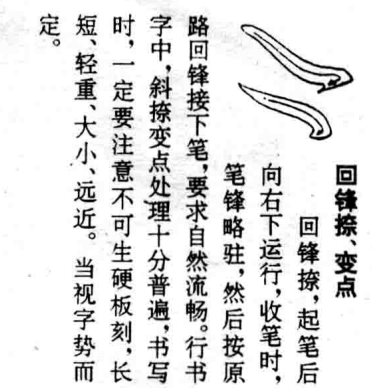 回锋捺、变点
回锋捺，起笔后
向右下运行，收笔时，
笔锋略驻，然后按原
路回锋接下笔，要求自然流畅。行书
字中，斜捺变点处理十分普遍，书写
时，一定要注意不可生硬板刻，长
短、轻重、大小、远近。当视字势而
定。